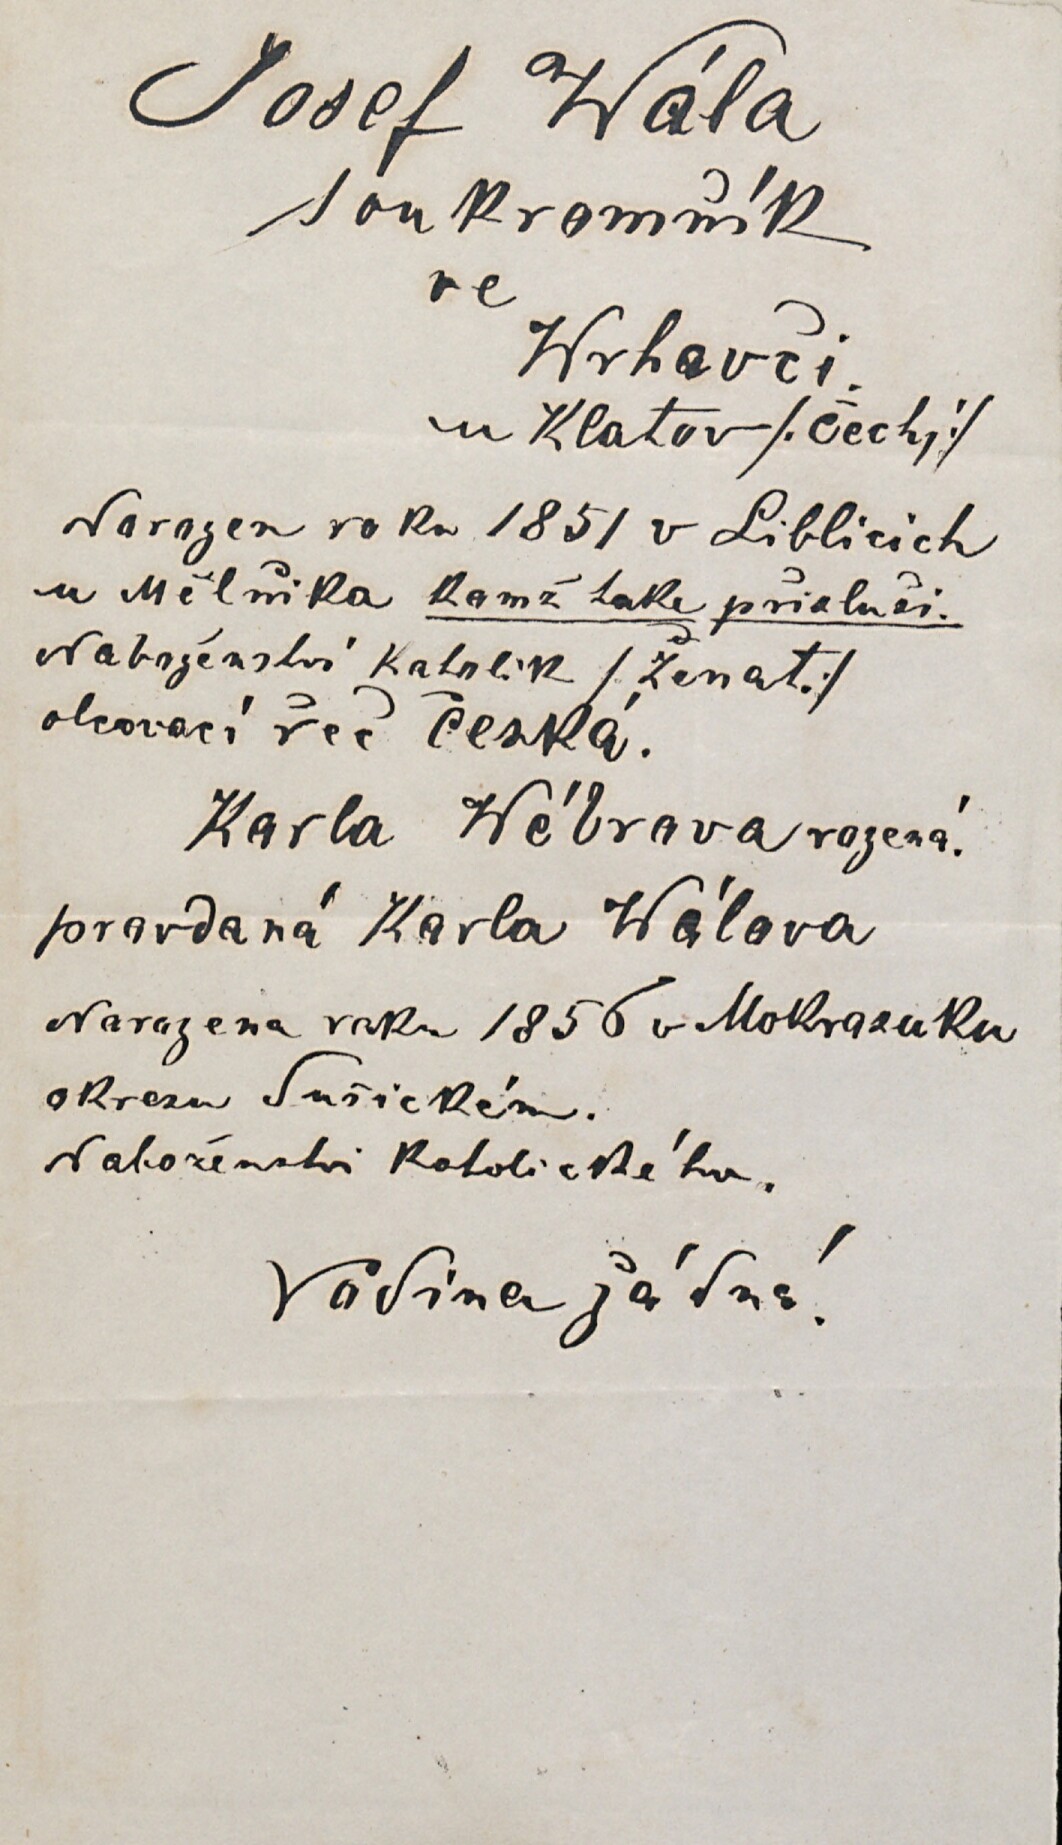 Josef Wála
soukromník
ve
Wrhavči.
u Klatov /: Čechy :/
Narozen roku 1851 v Liblicích
u Mělníka kamž take přísluší.
Naboženství Katolík /: Ženat :/
obcovací řeč Česká.
Karla Wébrava rozená.
provdaná Karla Wálova
Narozena roku 1856 v Mokrosuku
okresu Sušickém.
Naboženstvi katolického.
Rodina žádná!